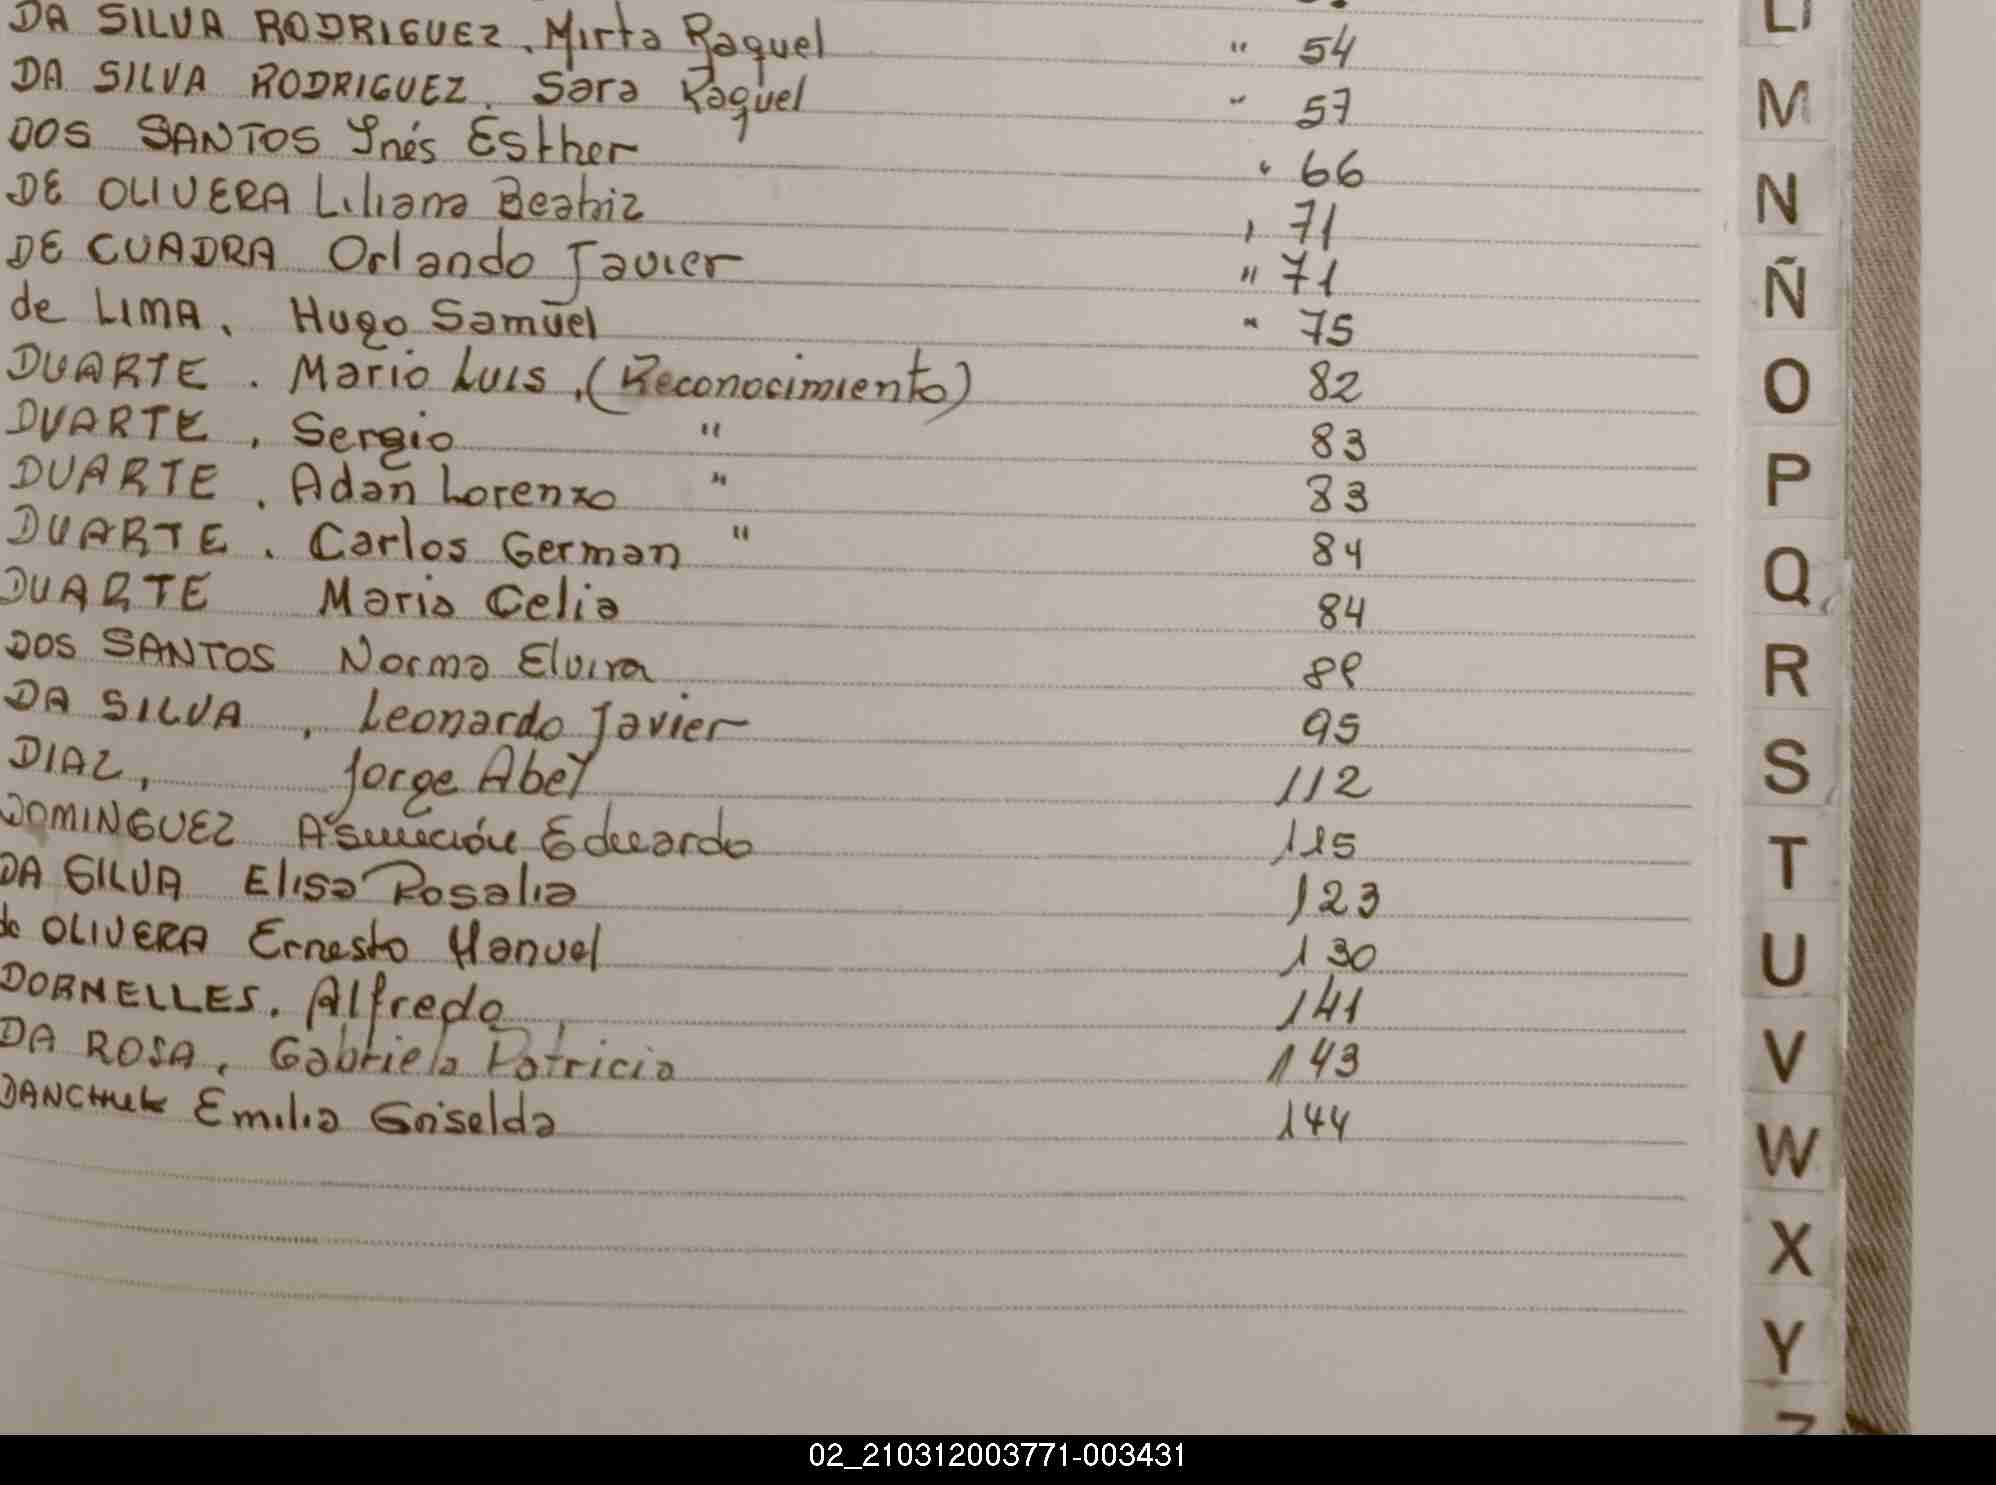 DA SILVA RODRIGUEZ, Mirta Raquel " 54
DA SILVA RODRIGUEZ, Sara Raquel " 57
DOS SANTOS Inés Esther " 66
DE OLIVERA Liliana Beatriz " 71
DE CUADRA Orlando Javier " 71
de LIMA, Hugo Samuel " 75
DUARTE, Mario Luis, (Reconocimiento) 82
DUARTE, Sergio " 83
DUARTE, Adan Lorenzo " 83
DUARTE, Carlos German " 84
DUARTE Maria Celia 84
DOS SANTOS Norma Elvira
DA SILVA, Leonardo Javier 95
DIAZ, Jorge Abel 112
DOMINGUEZ Asunción Eduardo 115
DA SILVA Elisa Rosalia 123
de OLIVERA Ernesto Manuel 130
DORNELLES, Alfredo 141
DA ROSA, Gabriela Patricia 143
DANCHUK Emilia Griselda 144
M
N
Ñ
O
P
Q
R
S
T
U
V
W
X
Y
02_210312003771-003431